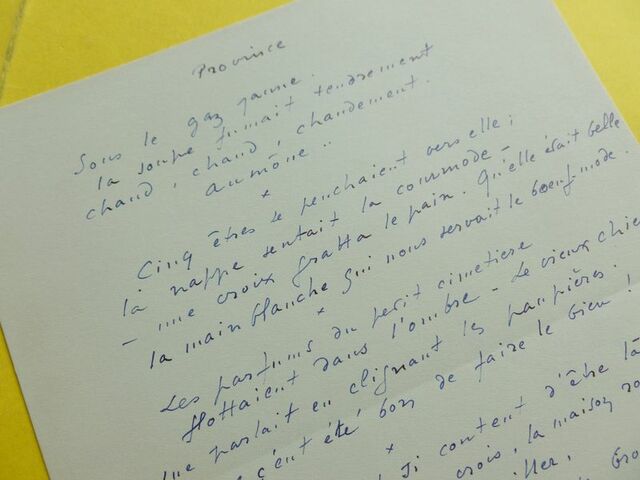 Province
Sous le gaz jaune.
la soupe fumait tendrement
chaud, chaud, chaudement.
aumône..
*
Cinq êtres se penchaient vers elle;
la nappe sentait la commode -
- une croix gratta le pain. Qu'elle était belle
la main blanche qui nous servait le bœuf mode.
*
Les parfums du petit cimetière
flottaient dans l'ombre - Le vieux chie
me parlait en clignant les paupières:
ç'eût été bon de faire le bien!
*
Si content d'être là
crois, la maison